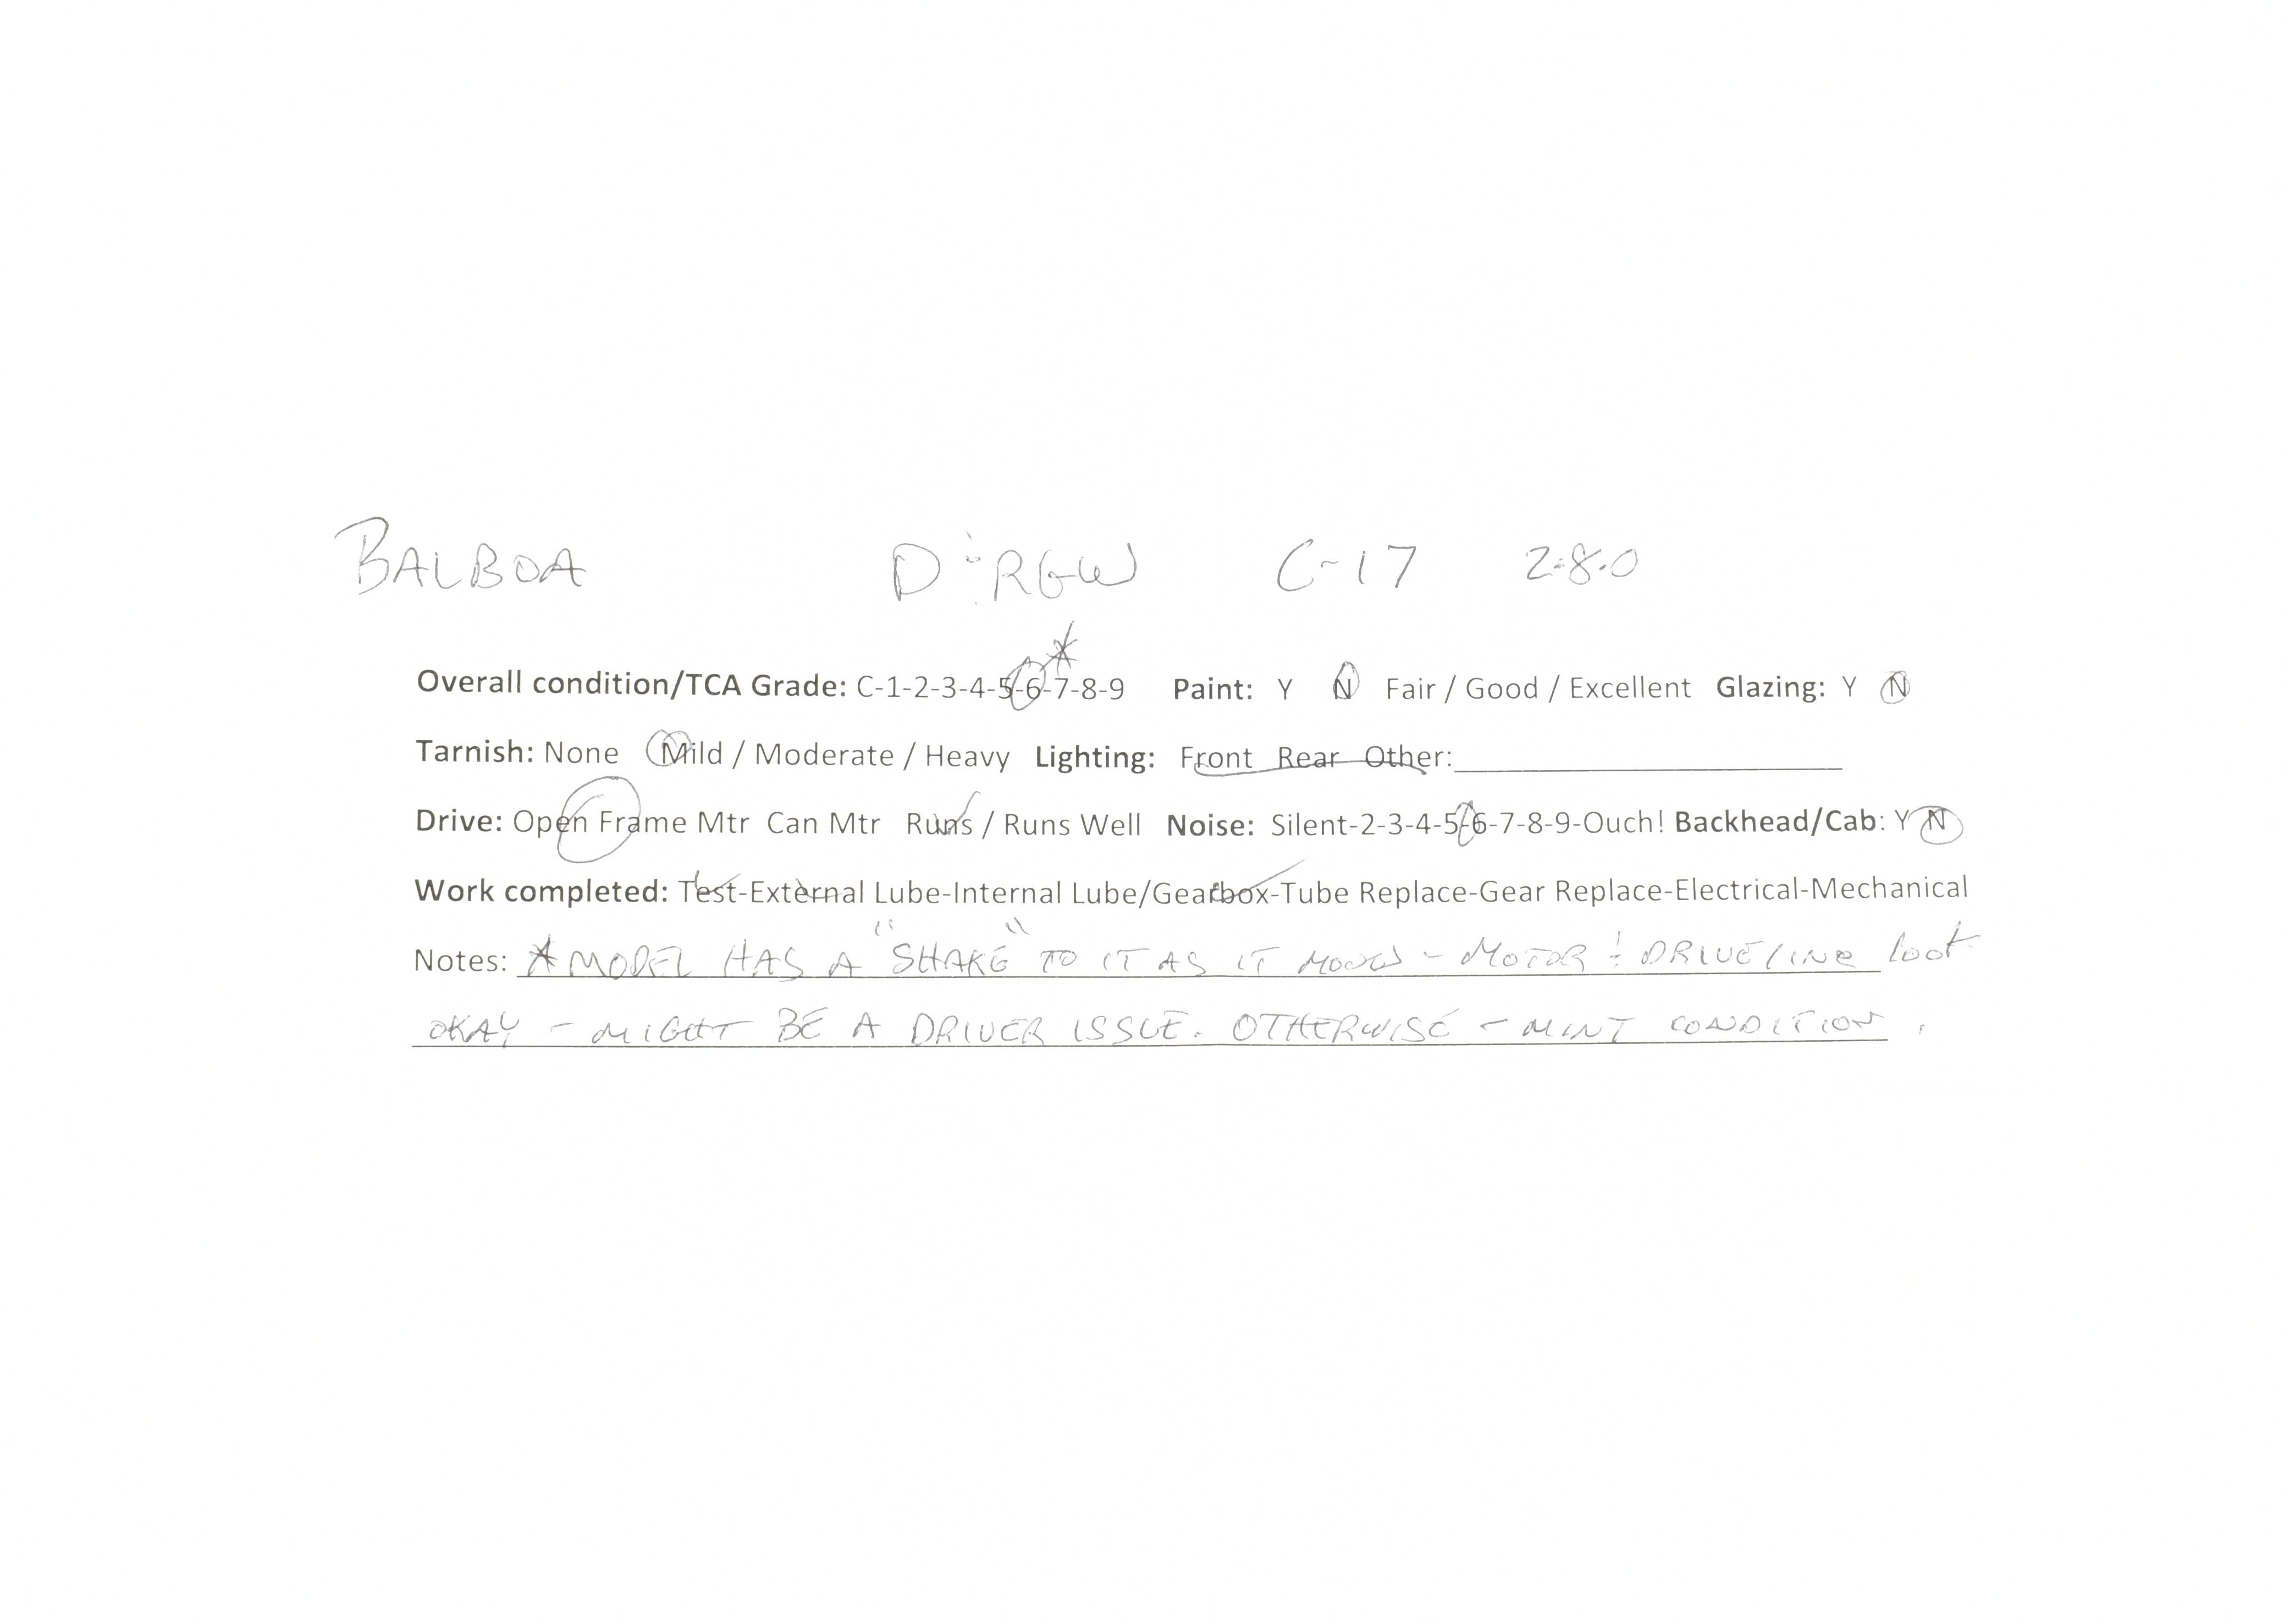 BALBOA D&RGW C-17 2-8-0
Overall condition/TCA Grade: C-1-2-3-4-5-6-7-8-9 Paint: Y N Fair / Good / Excellent Glazing: Y N
Tarnish: None Mild / Moderate / Heavy Lighting: Front Rear Other:
Drive: Open Frame Mtr Can Mtr Runs / Runs Well Noise: Silent-2-3-4-5-6-7-8-9-Ouch! Backhead/Cab: Y N
Work completed: Test-External Lube-Internal Lube/Gearbox-Tube Replace-Gear Replace-Electrical-Mechanical
Notes: * MODEL HAS A "SHAKE" TO IT AS IT MOVES - MOTOR & DRIVELINE look
OKAY - MIGHT BE A DRIVER ISSUE. OTHERWISE - MINT CONDITION.